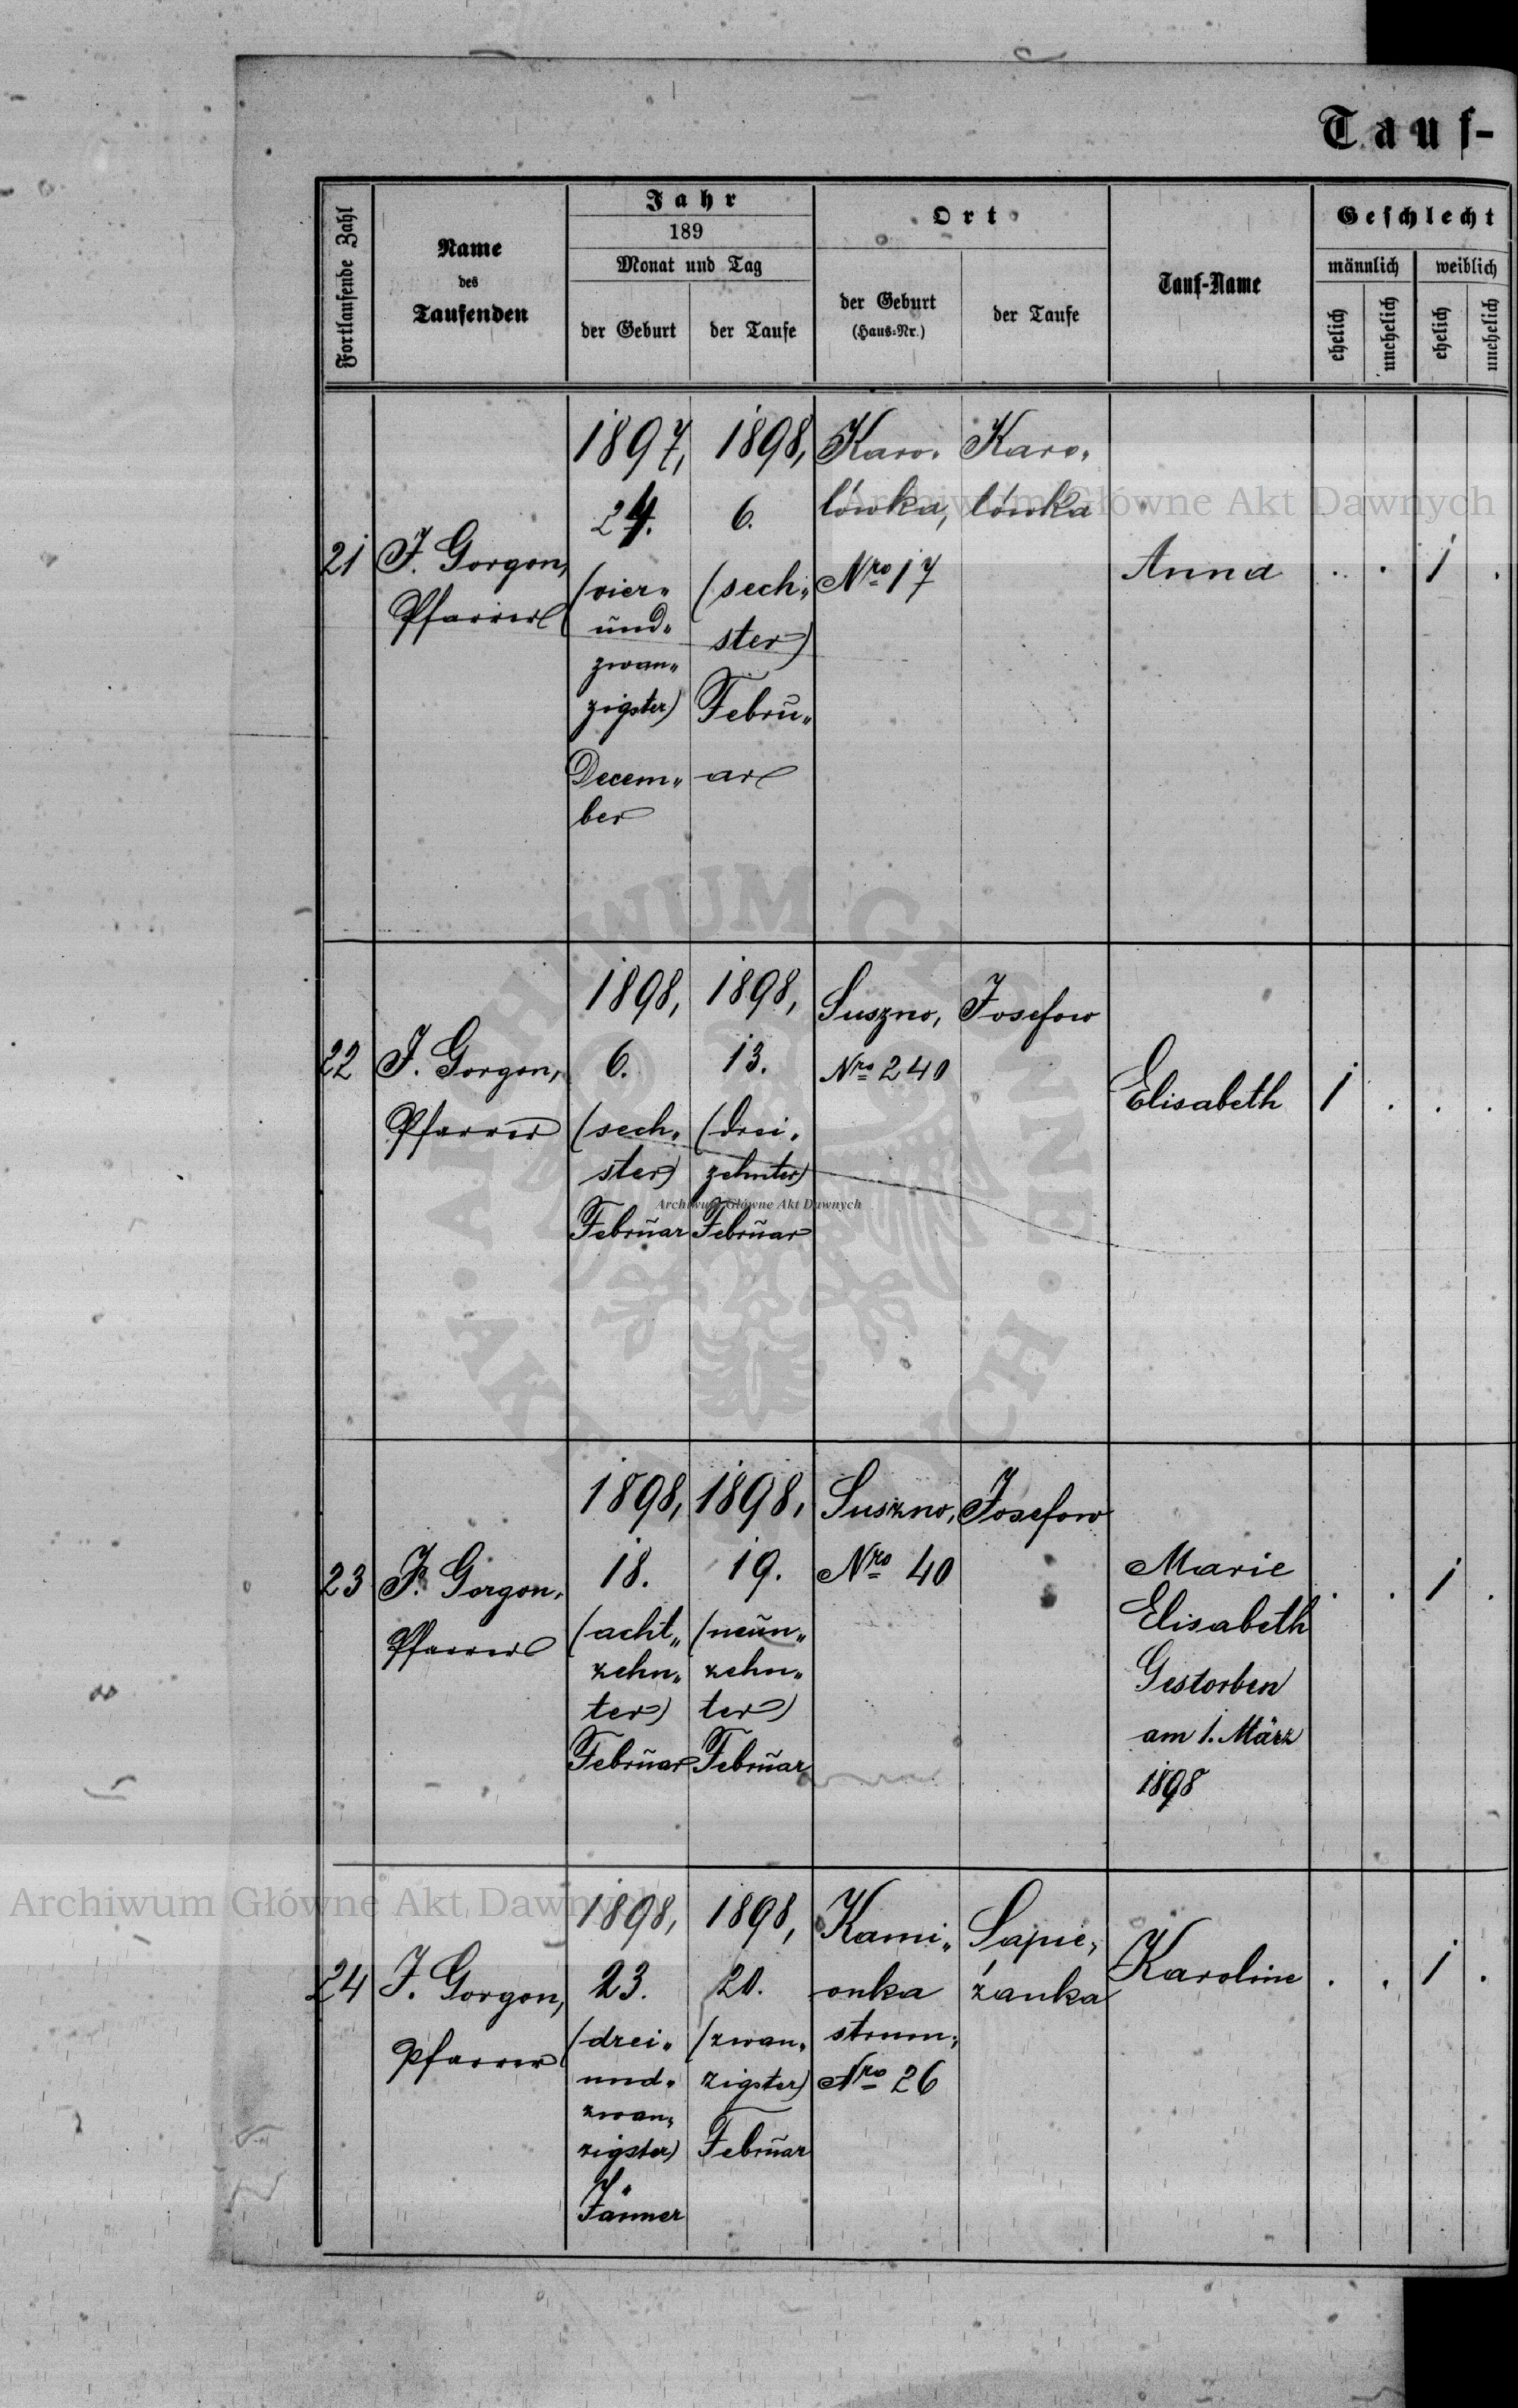 Tauf-
Fortlaufende Zahl
Name
des
Taufenden
Jahr
189
Monat und Tag
der Geburt
der Taufe
Ort
der Geburt
(Haus-Nr.)
der Taufe
Tauf-Name
Geschlecht
männlich
weiblich
ehelich
unehelich
ehelich
unehelich
21
J. Gorgon,
Pfarrer
1897,
24.
(vier"
und"
zwan"
zigster)
Decem"
ber
1898,
6.
(sech"
ster)
Febru"
ar
Karo"
lówka,
Nro 17
Karo"
lówka
Anna
. . 1 .
22
J. Gorgon,
Pfarrer
1898,
6.
(sech"
ster)
Februar
1898,
13.
(drei"
zehnter)
Februar
Suszno,
Nro 240
Josefow
Elisabeth
1 . . .
23
J. Gorgon,
Pfarrer
1898,
18.
(acht"
zehn"
ter)
Februar
1898,
19.
(neun"
zehn"
ter)
Februar
Suszno,
Nro 40
Josefow
Marie
Elisabeth
Gestorben
am 1. März
1898
. . 1 .
24
J. Gorgon,
Pfarrer
1898,
23.
(drei"
und"
zwan"
zigster)
Jänner
1898,
20.
(zwan"
zigster)
Februar
Kami"
onka
strum;
Nro 26
Sapie"
żanka
Karoline
. . 1 .
Archiwum Główne Akt Dawnych
Archiwum Główne Akt Dawnych
Archiwum Główne Akt Dawnych
ARCHIWUM GŁÓWNE · AKT DAWNYCH ·